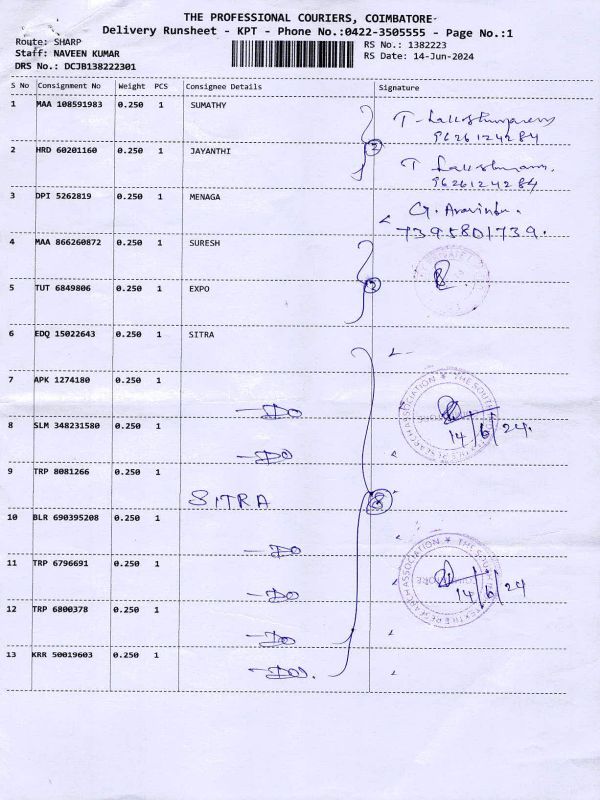 THE PROFESSIONAL COURIERS, COIMBATORE
Delivery Runsheet - KPT - Phone No.:0422-3505555 - Page No.:1
Route: SHARP
RS No.: 1382223
Staff: NAVEEN KUMAR
RS Date: 14-Jun-2024
DRS No.: DCJB138222301
S No Consignment No Weight PCS Consignee Details Signature
1 MAA 108591983 0.250 1 SUMATHY
9626124284
2 HRD 60201160 0.250 1 JAYANTHI
2
9626124284
3 DPI 5262819 0.250 1 MENAGA G. Aravinth.
7395801739.
4 MAA 866260872 0.250 1 SURESH
5 TUT 6849806 0.250 1 EXPO
2
6 EDQ 15022643 0.250 1 SITRA
7 APK 1274180 0.250 1
-DO
14/6/24.
8 SLM 348231580 0.250 1
-DO
9 TRP 8081266 0.250 1
SITRA
8
10 BLR 690395208 0.250 1
-DO
11 TRP 6796691 0.250 1
-DO
14/6/24
12 TRP 6800378 0.250 1
-DO
13 KRR 50019603 0.250 1
-DO.